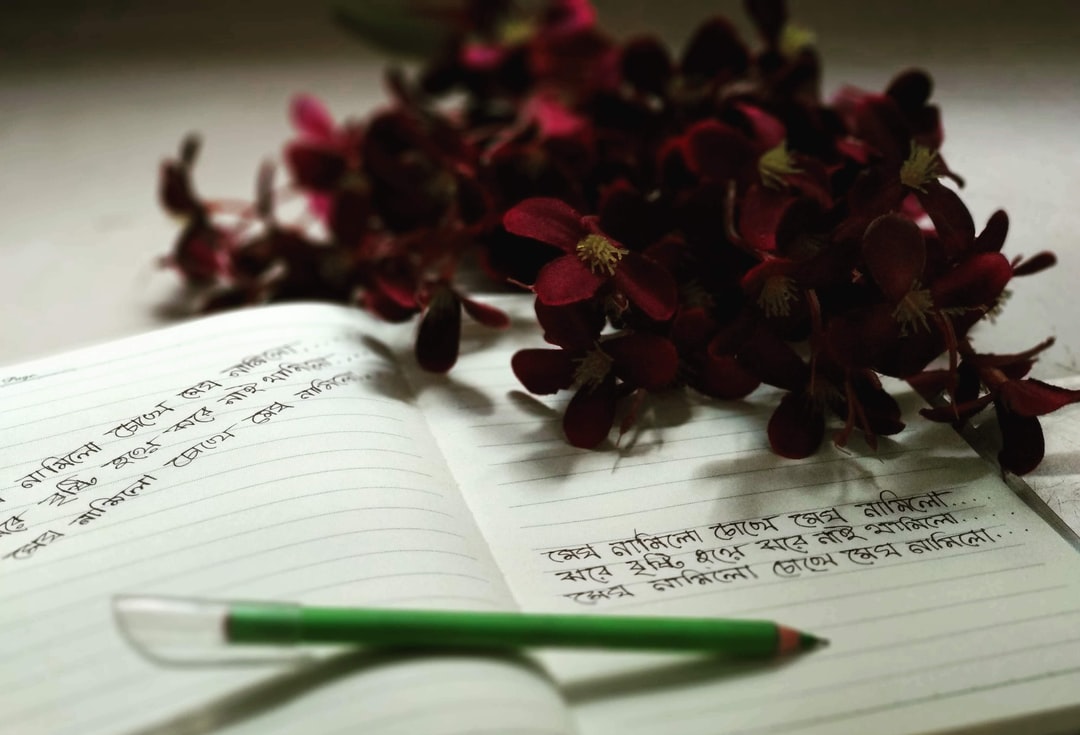 Page
নামিলো চোখে মেঘ নামিলো...
ঝরে বৃষ্টি হয়ে ঝরে নাই থামিলো....
মেঘ নামিলো চোখে মেঘ নামিলো..
মেঘ নামিলো চোখে মেঘ নামিলো....
ঝরে বৃষ্টি হয়ে ঝরে নাই থামিলো....
মেঘ নামিলো চোখে মেঘ নামিলো...